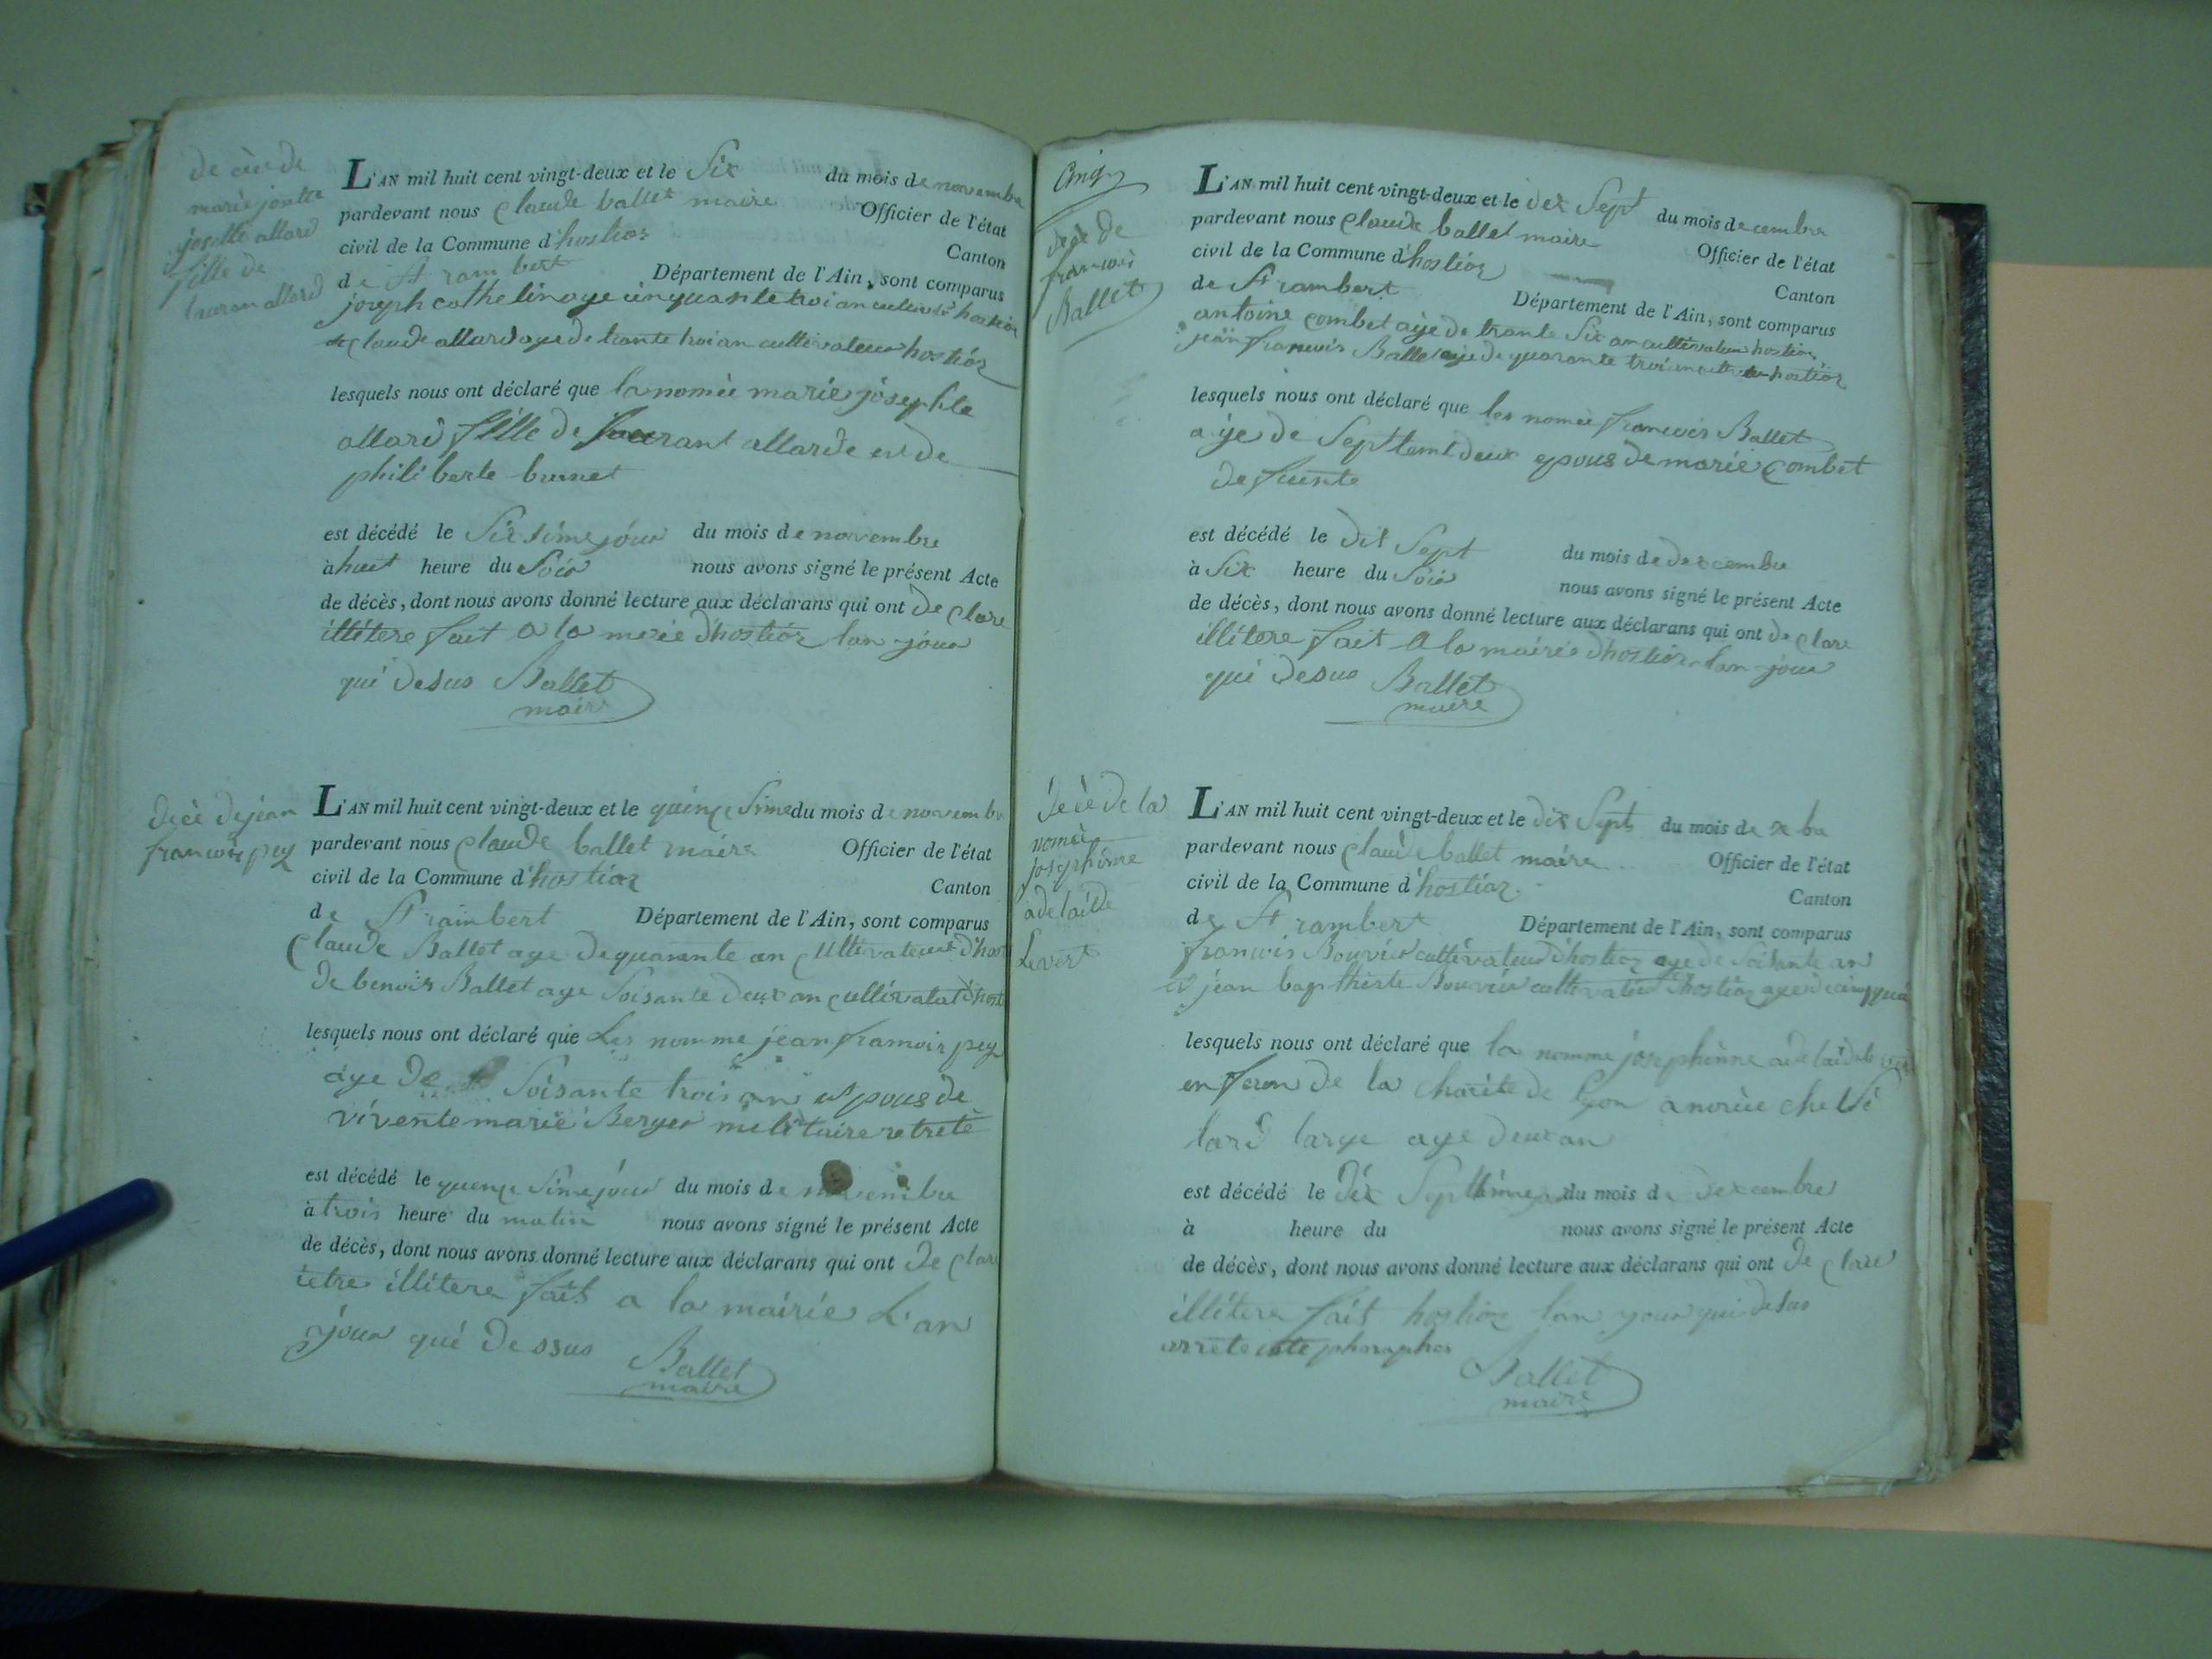 de cè de
marie jositte
josette allard
fille de
lauran allard
L'AN mil huit cent vingt-deux et le Six du mois de novembre
pardevant nous Claude ballet maire Officier de l'état
civil de la Commune d'hostiaz Canton
de St rambert Département de l'Ain, sont comparus
joseph cothelin aye cinquante troi an cultivateur hostiaz
de Claude allard aye de trante troi an cultivateur hostiaz
lesquels nous ont déclaré que la nomèe marie josephte
allard fille de laurant allarde et de
philiberte brunet
est décédé le Sixsime jour du mois de novembre
à huit heure du Soir nous avons signé le présent Acte
de décès, dont nous avons donné lecture aux déclarans qui ont de clare
illitere fait a la merie d'hostiaz lan jour
qui desus Ballet
maire
decè de jean
francois pey
L'AN mil huit cent vingt-deux et le quinze Sime du mois de novembre
pardevant nous Claude ballet maire Officier de l'état
civil de la Commune d'hostiaz Canton
de St rambert Département de l'Ain, sont comparus
Claude Ballet aye de quarante an Cultivateur d'host
de benoir Ballet aye Soisante deux an Cultivateur d'host
lesquels nous ont déclaré que Les nomme jean francois pey
aye de Soisante trois an epous de
vivente marie Berger militaire retreté
est décédé le quenze Sime jour du mois de novembre
à trois heure du matin nous avons signé le présent Acte
de décès, dont nous avons donné lecture aux déclarans qui ont de clare
ietre illitere fait a la mairie L'an
jour qui dessus Ballet
maire
Cinq
decè de
francois
Ballet
L'AN mil huit cent vingt-deux et le dix Sept du mois de cembre
pardevant nous Claude ballet maire Officier de l'état
civil de la Commune d'hostiaz Canton
de St rambert Département de l'Ain, sont comparus
antoine Combet aije de trante Six an cultivateur hostiaz
jean francois Ballet aije de quarante troi an hostiaz
lesquels nous ont déclaré que les nomèe francois Ballet
aije de Septtant deux epous de marie Combet
defuente
est décédé le dix Sept du mois de dexcembre
à Six heure du Soir nous avons signé le présent Acte
de décès, dont nous avons donné lecture aux déclarans qui ont de clare
illitere fait a la mairie d'hostiaz lan jour
qui desus Ballet
maire
decè de la
nomèe
josephinne
adelaide
Levert
L'AN mil huit cent vingt-deux et le dix Sept du mois de x bre
pardevant nous Claude ballet maire Officier de l'état
civil de la Commune d'hostiaz Canton
de St rambert Département de l'Ain, sont comparus
francois Bouvier cultivateur d'hostiaz aye de Soisante an
et jean bapthiste Bouvier cultivateur d'hostiaz aye de cinqquan
lesquels nous ont déclaré que la nomme josephinne adelaide le ver
enferon de la charite de Lyon a norrie che
lard large aye deux an
est décédé le dix Septtime jour du mois de dexcembre
à heure du nous avons signé le présent Acte
de décès, dont nous avons donné lecture aux déclarans qui ont de clare
illitere fait hostiaz lan jour qui desus
arrete Ballet
maire